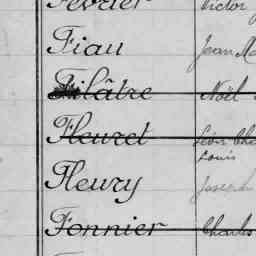 Février Victor
Fiau Jean
Filâtre Noël
Fleuret Léon
Louis
Fleury Joseph
Fonnier Charles